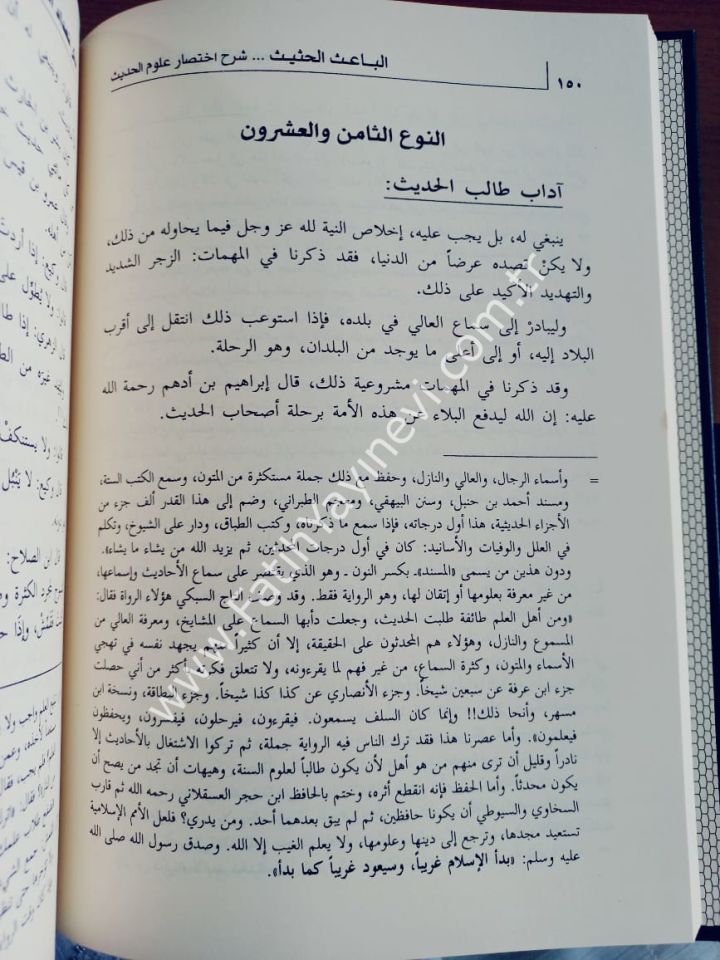 الباعث الحثيث ... شرح اختصار علوم الحديث
١٥٠
النوع الثامن والعشرون
آداب طالب الحديث:
ينبغي له، بل يجب عليه، إخلاص النية لله عز وجل فيما يحاوله من ذلك،
ولا يكنْ قصده عرضاً من الدنيا، فقد ذكرنا في المهمات: الزجر الشديد
والتهديد الأكيد على ذلك.
وليبادرْ إلى سماع العالي في بلده، فإذا استوعب ذلك انتقل إلى أقرب
البلاد إليه، أو إلى أعلى ما يوجد من البلدان، وهو الرحلة.
وقد ذكرنا في المهمات مشروعية ذلك، قال إبراهيم بن أدهم رحمة الله
عليه: إن الله ليدفع البلاء عن هذه الأمة برحلة أصحاب الحديث.
= وأسماء الرجال، والعالي والنازل، وحفظ مع ذلك جملة مستكثرة من المتون، وسمع الكتب الستة،
ومسند أحمد بن حنبل، وسنن البيهقي، ومعجم الطبراني، وضم إلى هذا القدر ألف جزء من
الأجزاء الحديثية، هذا أول درجاته، فإذا سمع ما ذكرناه، وكتب الطباق، ودار على الشيوخ، وتكلم
في العلل والوفيات والأسانيد: كان في أول درجات المحدثين، ثم يزيد الله من يشاء ما يشاء».
ودون هذين من يسمى «المسند» بكسر النون ـ وهو الذي يقتصر على سماع الأحاديث وإسماعها،
من غير معرفة بعلومها أو إتقان لها، وهو الرواية فقط. وقد وصف التاج السبكي هؤلاء الرواة فقال:
«ومن أهل العلم طائفة طلبت الحديث، وجعلت دأبها السماع على المشايخ، ومعرفة العالي من
المسموع والنازل، وهؤلاء هم المحدثون على الحقيقة، إلا أن كثيراً منهم يجهد نفسه في تهجي
الأسماء والمتون، وكثرة السماع، من غير فهم لما يقرءونه، ولا تتعلق فكرته بأكثر من أني حصلت
جزء ابن عرفة عن سبعين شيخاً. وجزء الأنصاري عن كذا كذا شيخاً. وجزء البطاقة، ونسخة ابن
مسهر، وأنحا ذلك!! وإنما كان السلف يسمعون. فيقرءون، فيرحلون، فيفسرون، ويحفظون
فيعلمون». وأما عصرنا هذا فقد ترك الناس فيه الرواية جملة، ثم تركوا الاشتغال بالأحاديث إلا
نادراً وقليل أن ترى منهم من هو أهل لأن يكون طالباً لعلوم السنة، وهيهات أن تجد من يصح أن
يكون محدثاً. وأما الحفظ فإنه انقطع أثره، وختم بالحافظ ابن حجر العسقلاني رحمه الله ثم قارب
السخاوي والسيوطي أن يكونا حافظين، ثم لم يبق بعدهما أحد. ومن يدري؟ فلعل الأمم الإسلامية
تستعيد مجدها، وترجع إلى دينها وعلومها، ولا يعلم الغيب إلا الله. وصدق رسول الله صلى الله
عليه وسلم: «بدأ الإسلام غريباً، وسيعود غريباً كما بدأ».
www.FatihYayinevi.com.tr